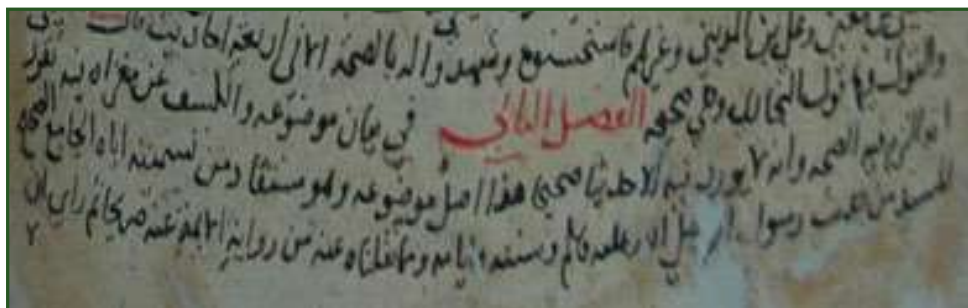 بن معين وعلي بن المديني وغيرهم فاستحسنوه وشهدوا له بالصحة الا في اربعة احاديث قال
والقول فيها قول البخاري وهي صحيحة الفصل الثاني في بيان موضوعه والكشف عن مغزاه فيه تقرر
انه التزم فيه الصحة وانه لا يورد فيه الا حديثا صحيحا هذا اصل موضوعه وهو مستفاد من تسميته اياه الجامع الصحيح
المسند من حديث رسول الله صلى الله عليه وسلم وسننه وايامه ومما نقلناه عنه من رواية الائمة عنه صريحا ثم راى ان
لا